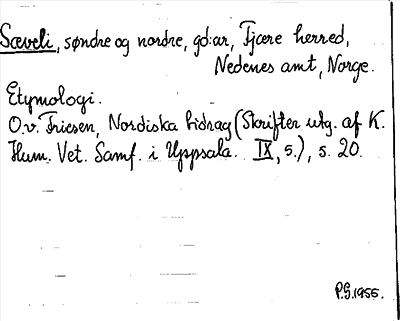 Sæveli, søndre og nordre, gd:ar, Fjære herred,
Nedenes amt, Norge.
Etymologi.
O.v. Friesen, Nordiska bidrag (Skrifter utg. af K.
Hum. Vet. Samf. i Uppsala. IX, 5.), s. 20.
P.G. 1955.